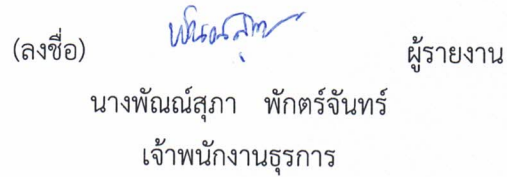 (ลงชื่อ) พัณณ์สุภา ผู้รายงาน
นางพัณณ์สุภา พักตร์จันทร์
เจ้าพนักงานธุรการ